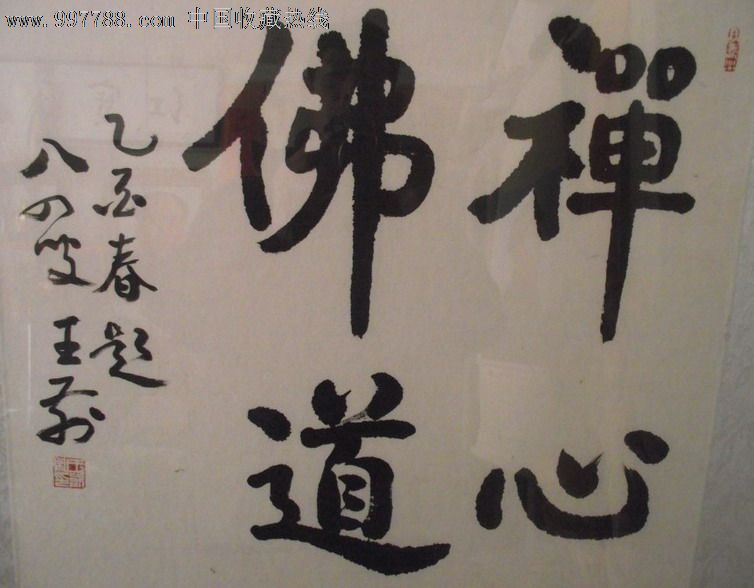 www.997788.com 中国收藏热线
禪心
佛道
乙酉春题
八四叟 王